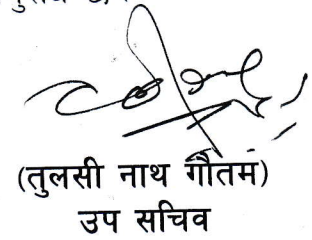 (तुलसी नाथ गौतम)
उप सचिव